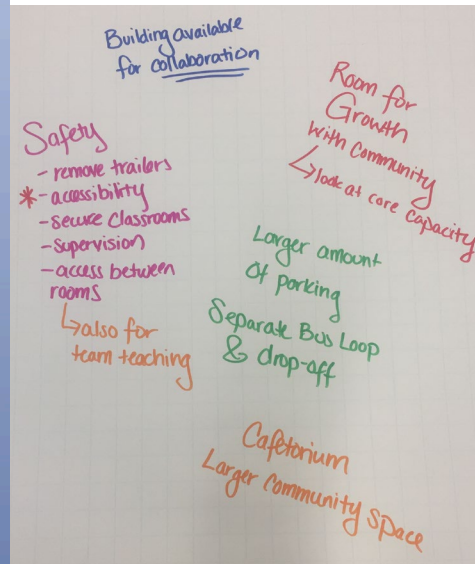 Building available
for collaboration
Room for
Growth
with community
↳ look at core capacity
Safety
- remove trailers
* - accessibility
- secure classrooms
- supervision
- access between
rooms
↳ also for
team teaching
Larger amount
of parking
Separate Bus Loop
& drop-off
Cafetorium
Larger Community Space